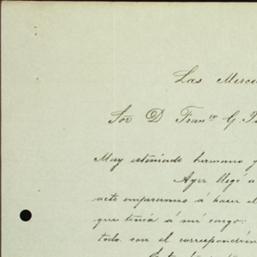 Las Merce
Sor D Franco G. P
Muy estimado hermano y
Ayer llegó a
acto empezamos á hacer el
que tenia á mi cargo
todo con el correspondien